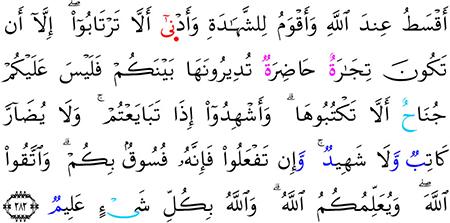 أَقْسَطُ عِندَ اللَّهِ وَأَقْوَمُ لِلشَّهَٰدَةِ وَأَدْنَىٰٓ أَلَّا تَرْتَابُوٓا۟ ۖ إِلَّآ أَن
تَكُونَ تِجَٰرَةً حَاضِرَةً تُدِيرُونَهَا بَيْنَكُمْ فَلَيْسَ عَلَيْكُمْ
جُنَاحٌ أَلَّا تَكْتُبُوهَا ۗ وَأَشْهِدُوٓا۟ إِذَا تَبَايَعْتُمْ ۚ وَلَا يُضَآرَّ
كَاتِبٌ وَلَا شَهِيدٌ ۚ وَإِن تَفْعَلُوا۟ فَإِنَّهُۥ فُسُوقٌۢ بِكُمْ ۗ وَٱتَّقُوا۟
ٱللَّهَ ۖ وَيُعَلِّمُكُمُ ٱللَّهُ ۗ وَٱللَّهُ بِكُلِّ شَىْءٍ عَلِيمٌ ٢٨٢